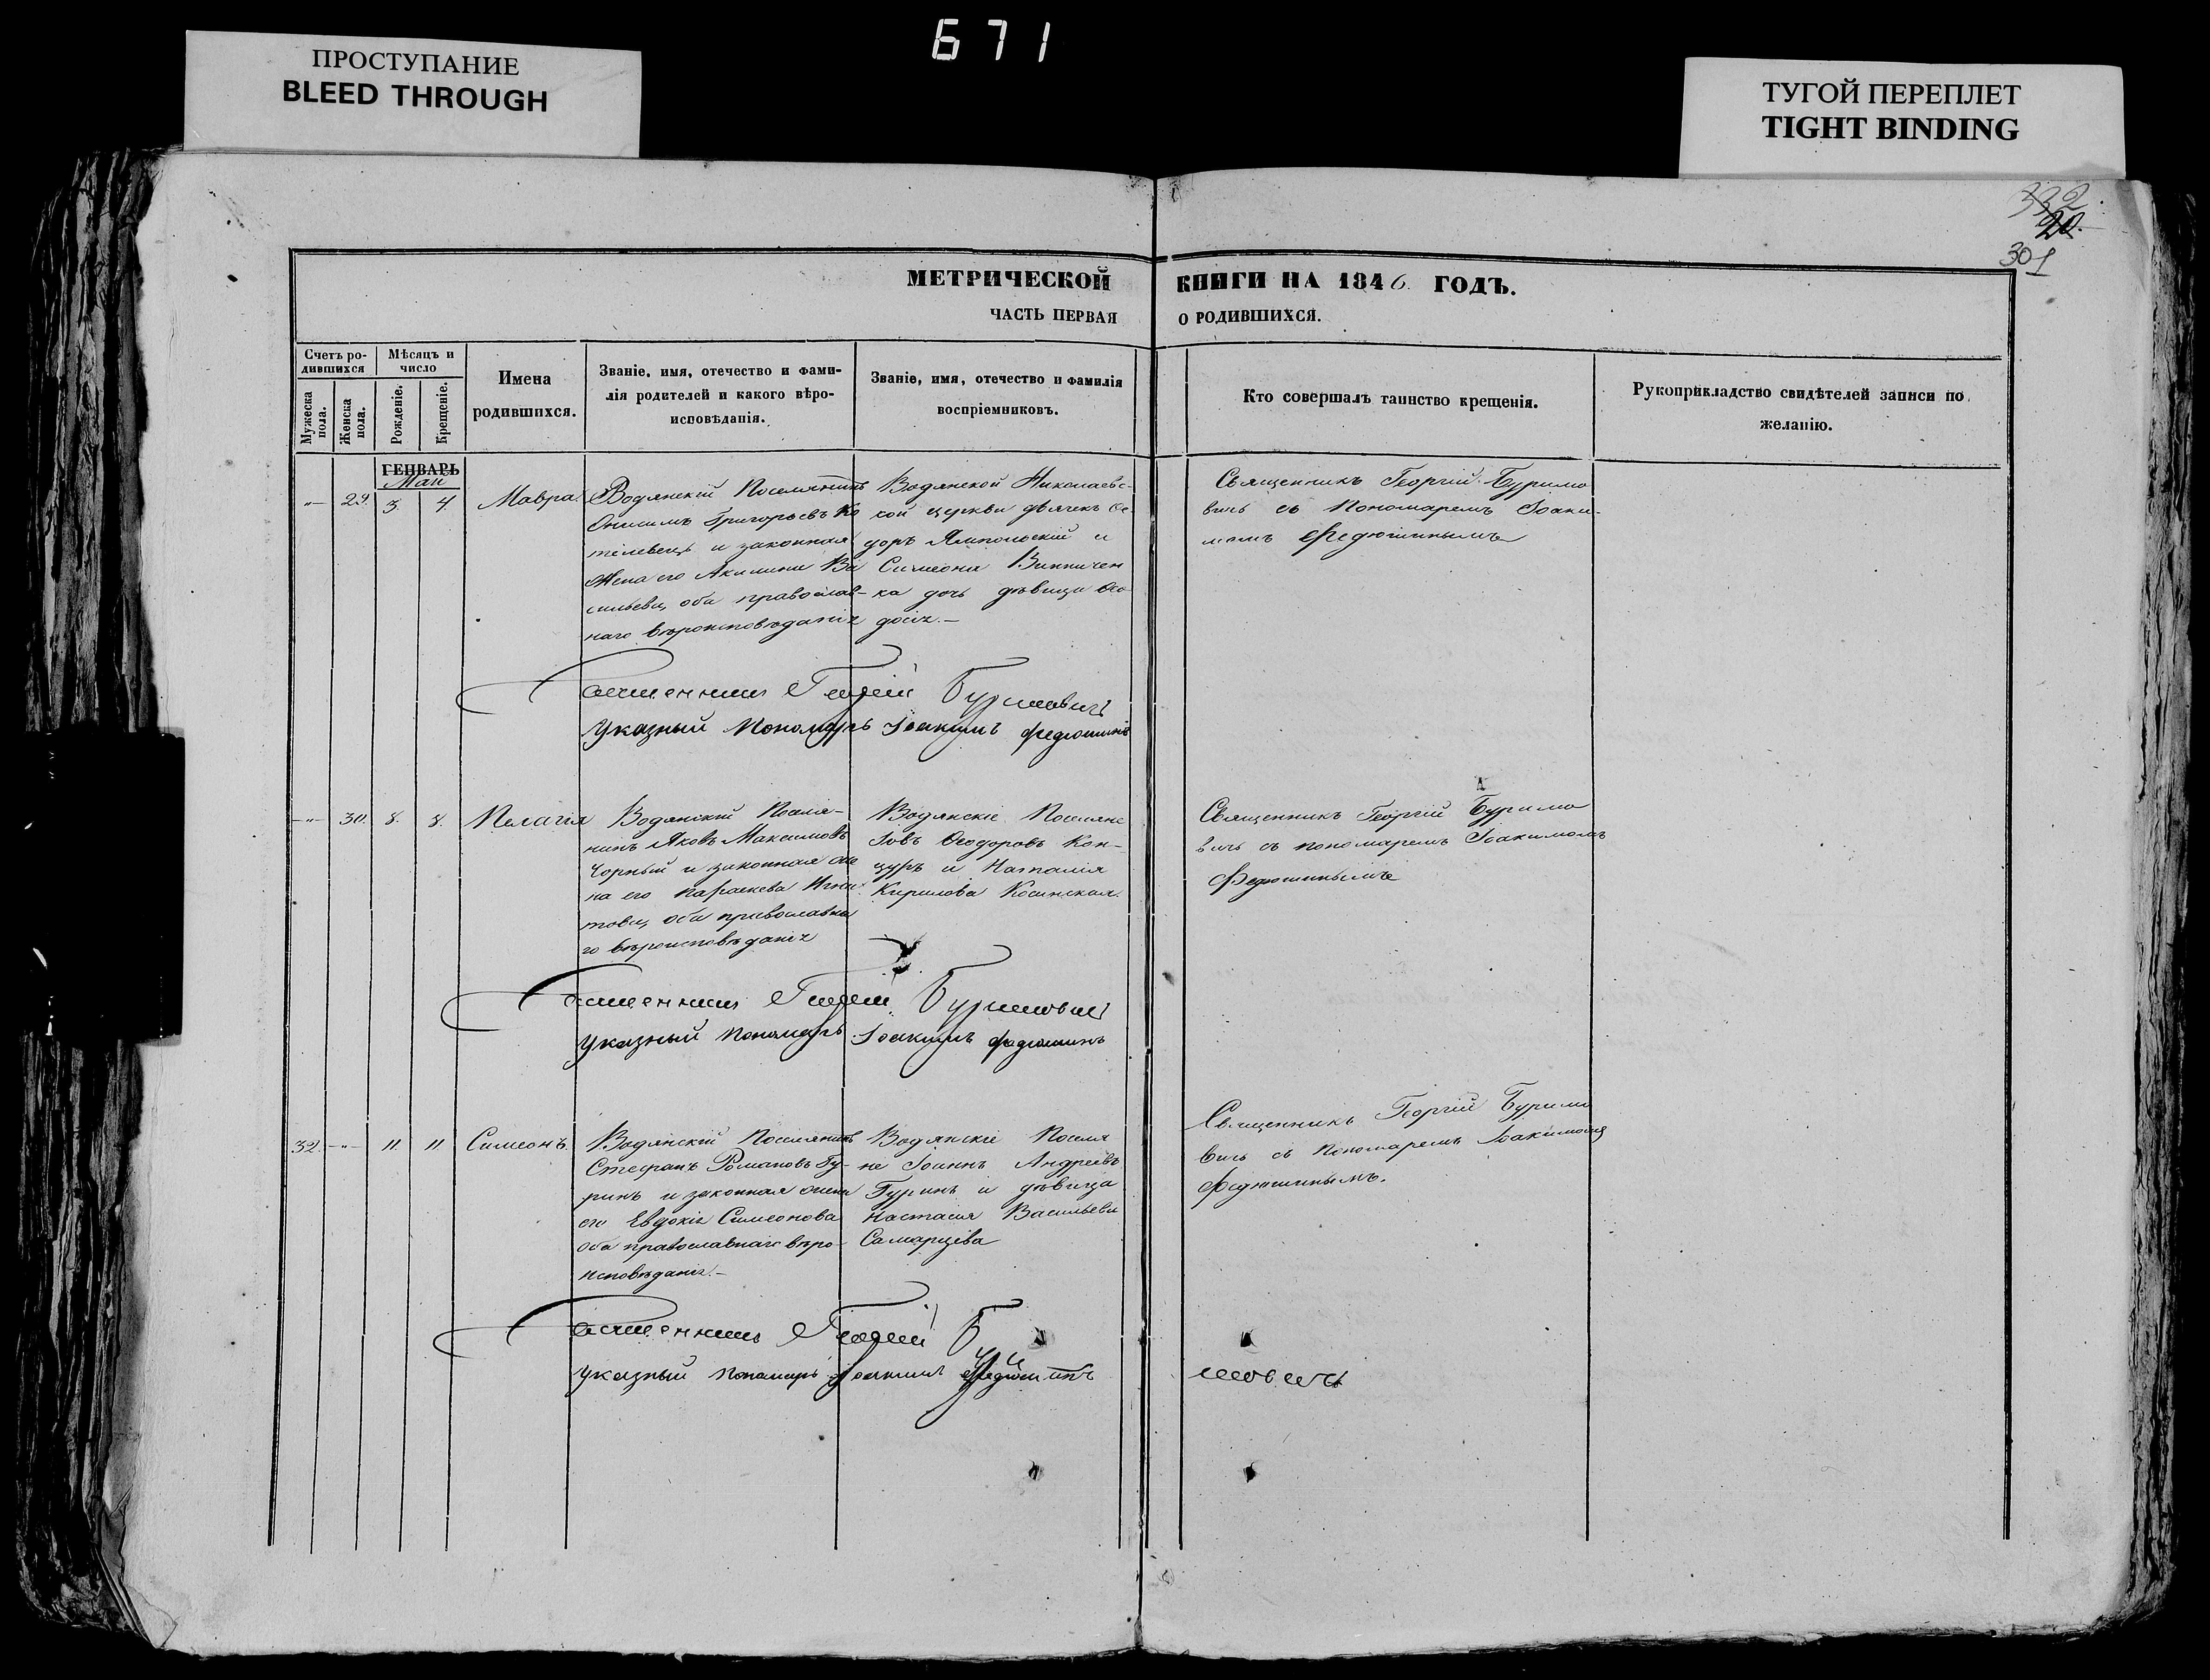 671
ПРОСТУПАНИЕ
BLEED THROUGH
ТУГОЙ ПЕРЕПЛЕТ
TIGHT BINDING
332
20.
301
МЕТРИЧЕСКОЙ КНИГИ НА 1846 ГОДЪ.
ЧАСТЬ ПЕРВАЯ О РОДИВШИХСЯ.
Счетъ ро-
дившихся
Мужеска пола.
Женска пола.
Мѣсяцъ и
число
Рожденіе.
Крещеніе.
Имена
родившихся.
Званіе, имя, отечество и фами-
лія родителей и какого вѣро-
исповѣданія.
Званіе, имя, отечество и фамилія
воспріемниковъ.
Кто совершалъ таинство крещенія.
Рукоприкладство свидѣтелей записи по
желанію.
ГЕНВАРЬ
Маи
-"- 29. 3. 4. Мавра.
Водянскій Поселянинъ
Онисимъ Григорьевъ Ко
телевецъ и законная
жена его Акилина Ва
сильева, оба православ-
наго вѣроисповѣданія
Водянской Николаевс-
кой церкви дьячекъ Ѳе-
доръ Ямпольскій и
Симеона Винничен
ка дочь дѣвица Ѳео
досія.-
Священникъ Георгій Буримо
вичь съ Пономаремъ Іоаки-
момъ Федюшинымъ
Священникъ Георгій Буримовичъ
Указный Пономарь Іоакимъ Федюшинъ
-"- 30. 8. 8. Пелагія
Водянскій Поселя-
нинъ Яковъ Максимовъ
Чорный и законная же
на его Параскева Игна
това, оба православна
го вѣроисповѣданія
Водянскіе Поселяне
Іовъ Ѳеодоровъ Кон-
цуръ и Наталія
Кирилова Косинская.
Священникъ Георгій Буримо
вичь съ пономаремъ Іоакимомъ
Федюшинымъ
Священникъ Георгій Буримовичъ
Указный Пономарь Іоакимъ Федюшинъ
32. -"- 11. 11. Симеонъ.
Водянскій Поселянинъ
Стефанъ Романовъ Гу-
ринъ и законная жена
его Евдокія Симеонова
оба православнаго вѣро-
исповѣданія.-
Водянскіе Поселя
не Іоаннъ Андреевъ
Гуринъ и дѣвица
Настасія Васильева
Самарцева
Священникъ Георгій Буримо
вичь съ Пономаремъ Іоакимомъ
Федюшинымъ.
Священникъ Георгій Буримовичъ
Указный Пономарь Іоакимъ Федюшинъ